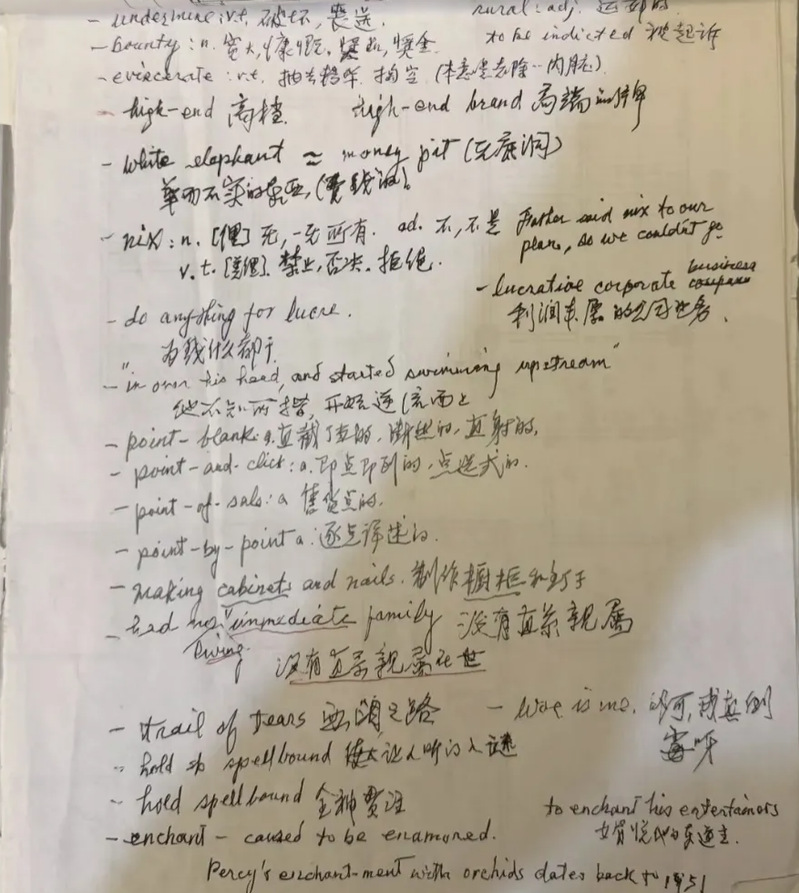 - undermine: vt. 破坏,
rural: adj.
to be indicted 被起诉
- bounty: n. 宽大, 慷慨, 奖金
- eviscerate: v.t. 挖空 (本意是去除…内脏)
- high-end 高档
high-end brand 高端品牌
- white elephant ≈ money pit (无底洞)
华而不实的东西, (费钱的)
- nix: n. [俚] 无, 一无所有. ad. 不, 不是
Father said nix to our
plans, so we couldn't go
v.t. [美俚]. 禁止, 否决. 拒绝.
- lucrative corporate business
利润丰厚的公司业务.
- do anything for lucre.
为钱什么都干
- "in over his head, and started swimming upstream"
他不知所措, 开始逆流而上
- point-blank: a. 直截了当的, 断然的, 直射的,
- point-and-click: a. 即点即到的, 点选式的.
- point-of-sals: a 售货点的.
- point-by-point a: 逐点详述的.
- making cabinets and nails. 制作橱柜和钉子
- had no "immediate family 没有直系亲属
living.
没有直系亲属在世
- trail of tears 血泪之路
- woe is me. 我真倒
霉呀
- hold sb spellbound 使人听得入谜
- hold spellbound 全神贯注
- enchant - caused to be enamored.
to enchant his entertainors
取悦他的东道主.
Percy's enchant-ment with orchids dates back to 1951